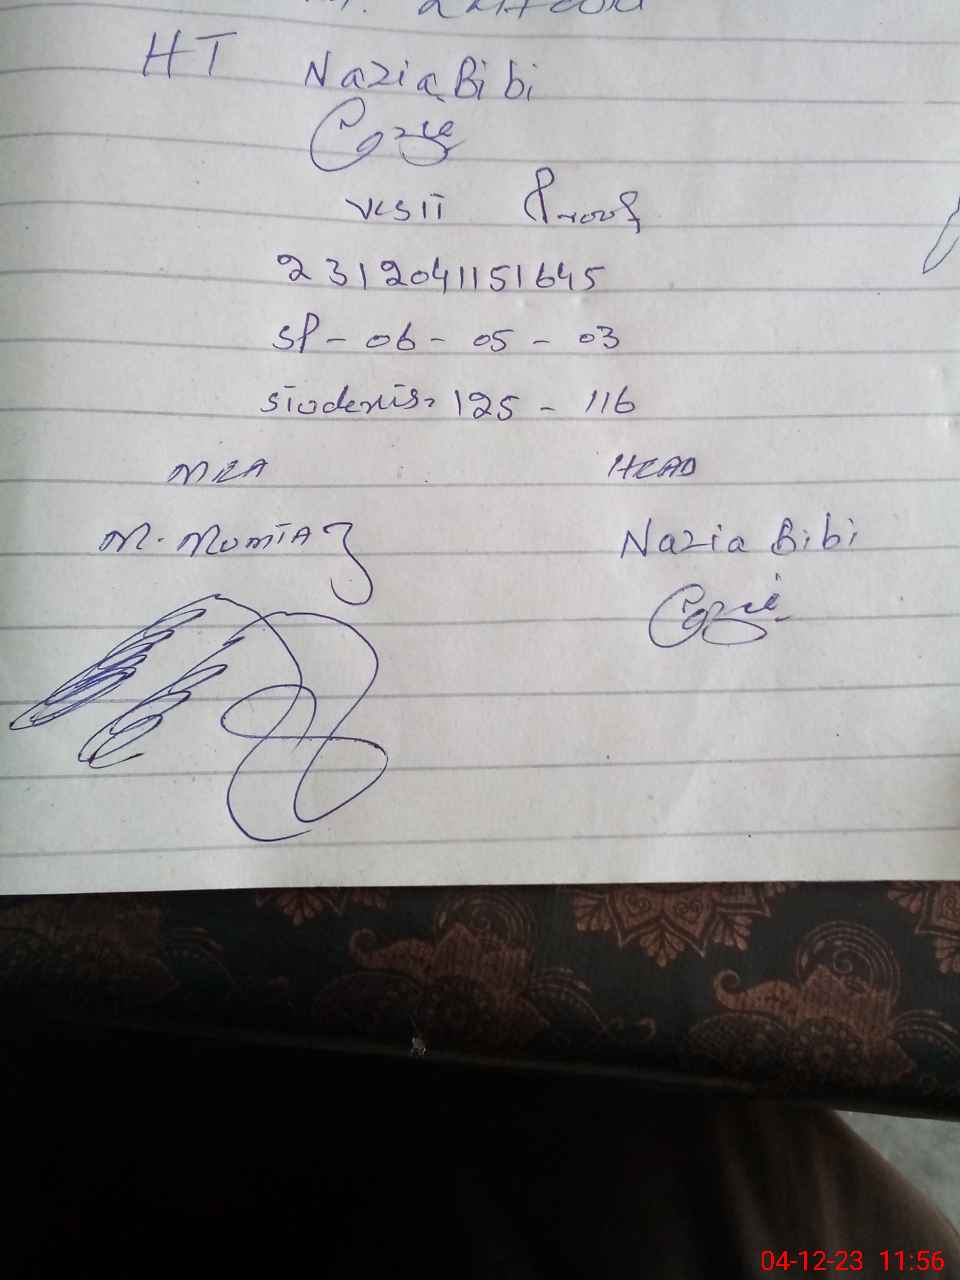 HT Nazia Bibi
VISIT Proof
2312041151645
SP - 06 - 05 - 03
Students 125 - 116
MEA HEAD
M. MUMTAZ Nazia Bibi
04-12-23 11:56